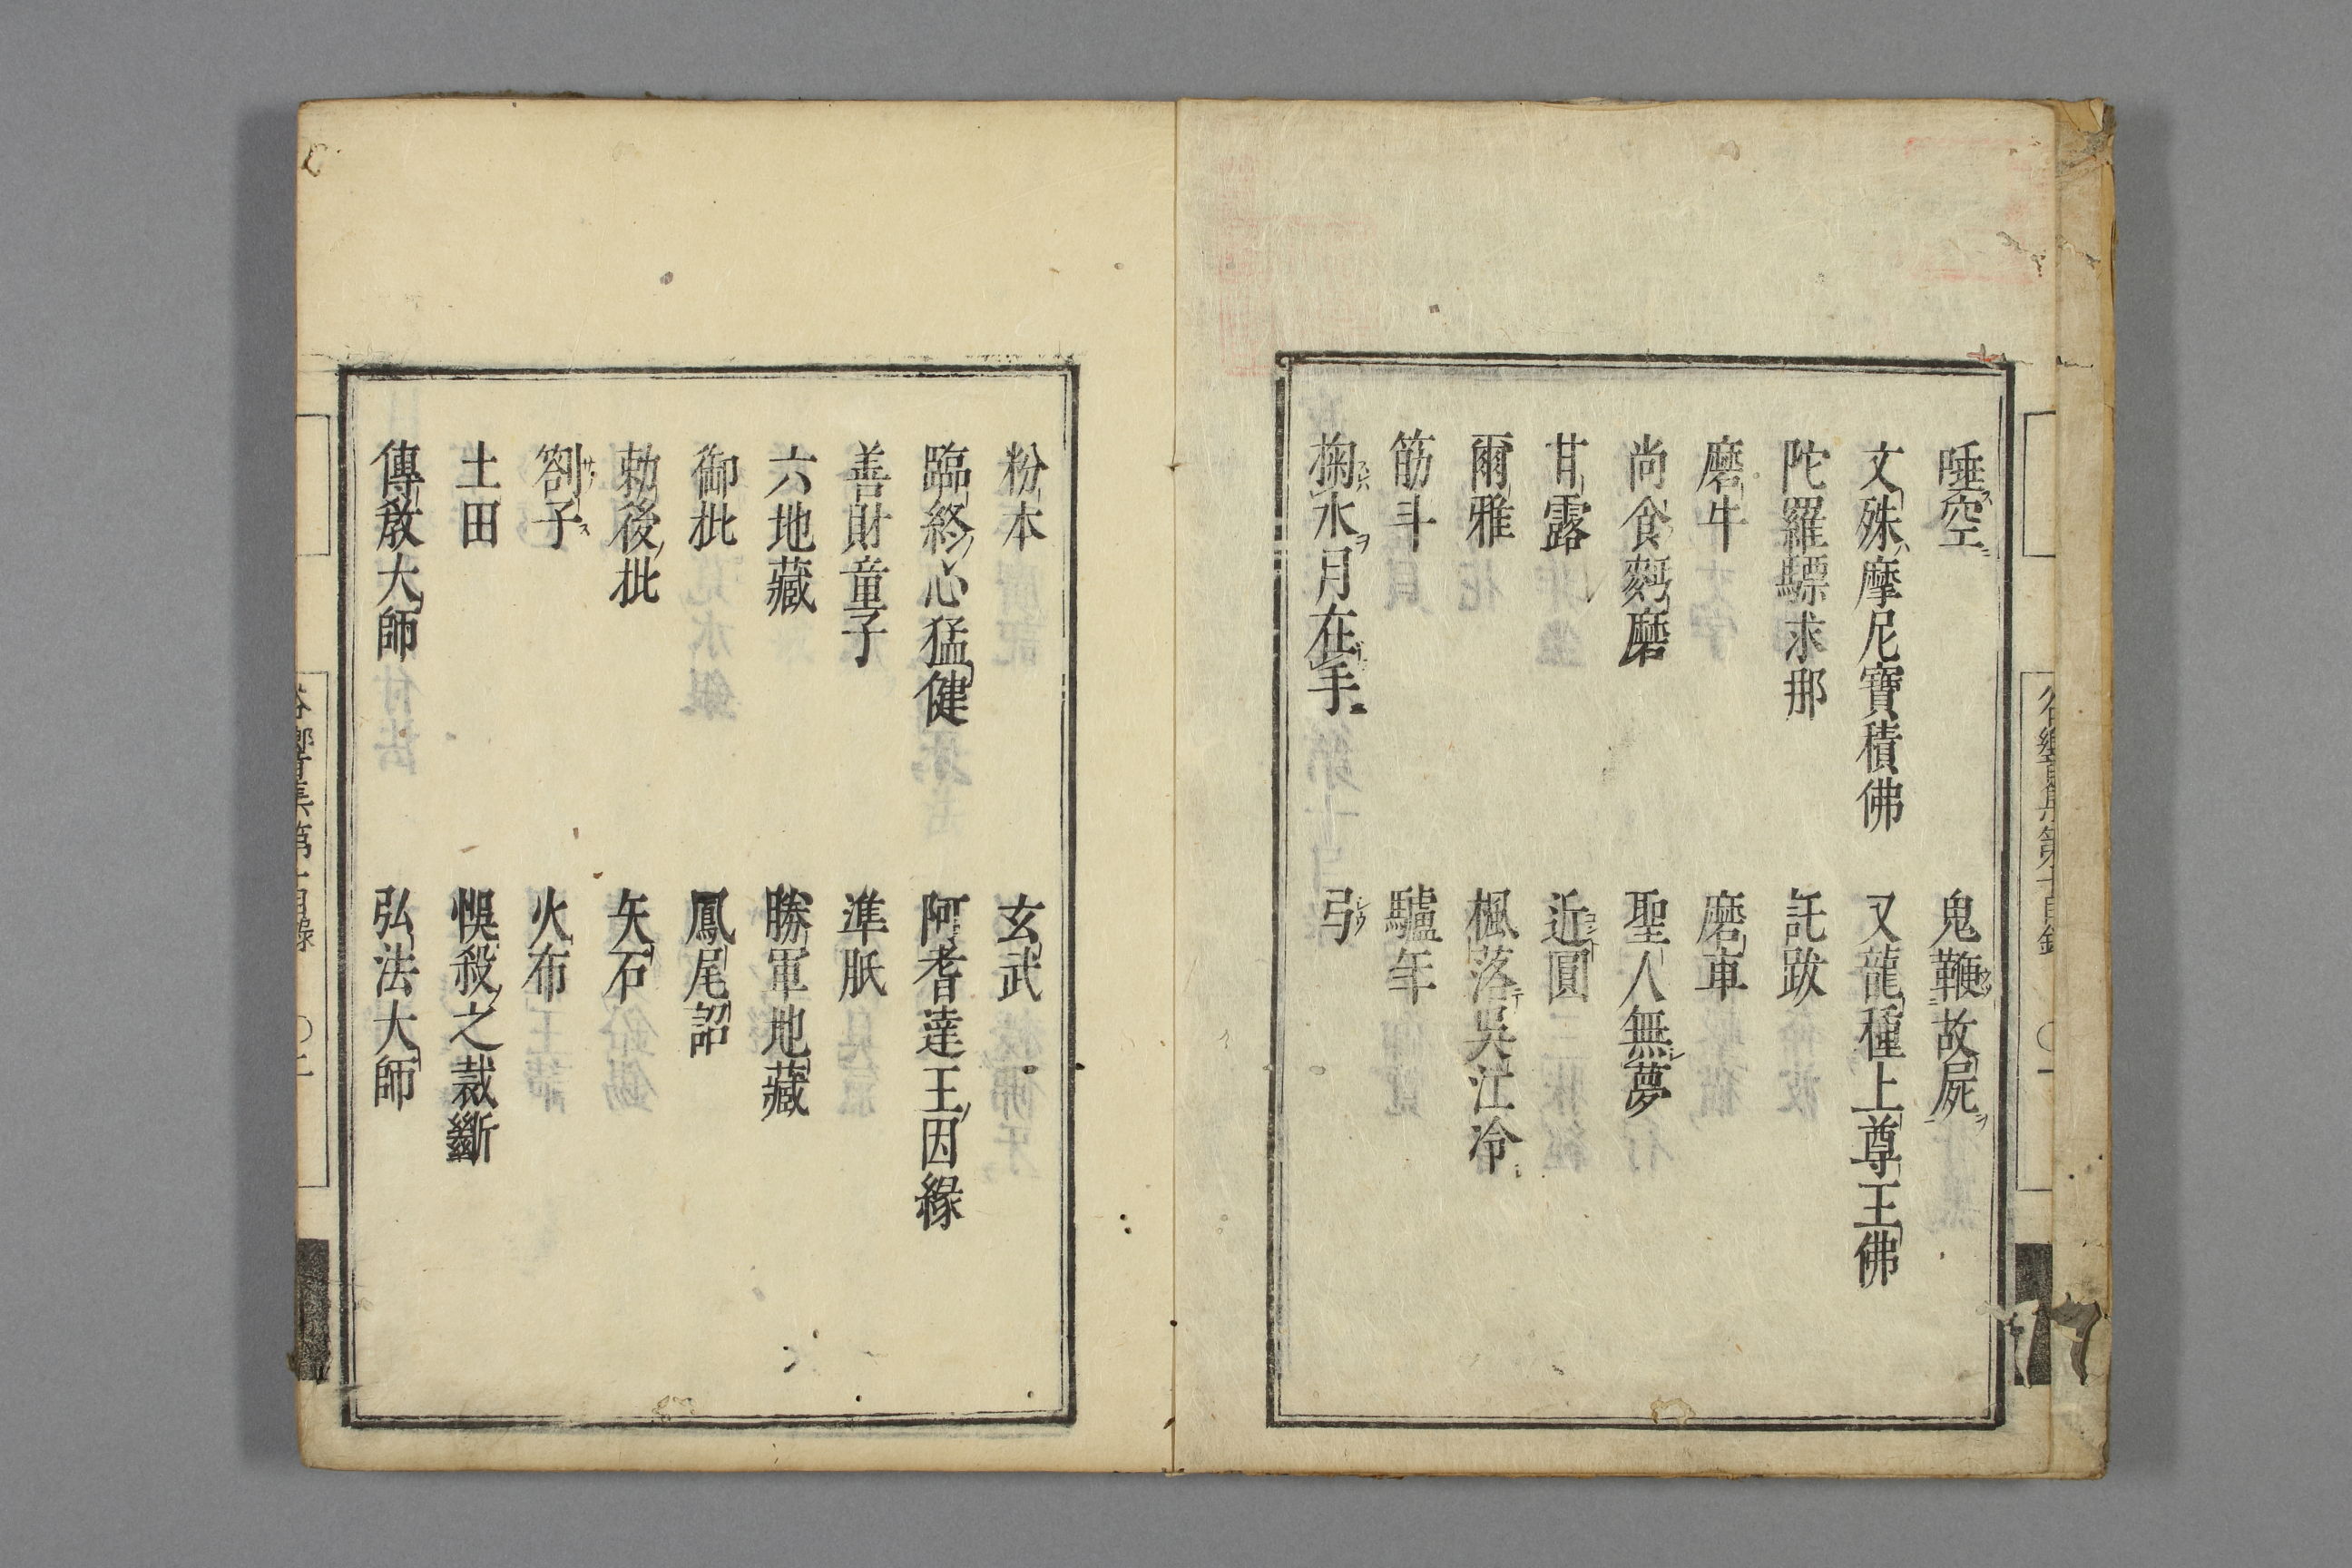 唾空　鬼鞭故屍
文殊摩尼寶積佛　又龍種上尊王佛
陀羅驃求那　託跋
磨牛　磨車
尚食麪磨　聖人無夢
甘露　近圓
爾雅　楓落吳江冷
筋斗　驢年
掬水月在手　弓
粉本　玄武
臨終心猛健　阿耆達王因緣
善財童子　準胝
六地藏　勝軍地藏
御批　鳳尾詔
勅後批　矢石
劄子　火布
土田　悞殺之裁斷
傳教大師　弘法大師